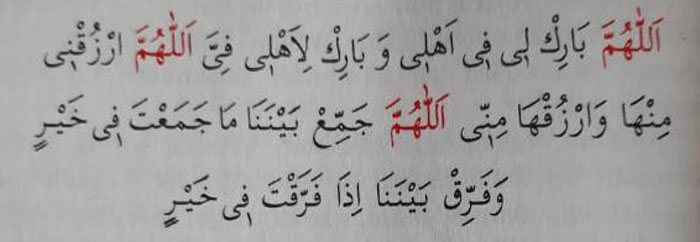 اَللّٰهُمَّ بَارِكْ لِى فِى اَهْلِى وَ بَارِكْ لِاَهْلِى فِىَّ اَللّٰهُمَّ ارْزُقْنِى
مِنْهَا وَارْزُقْهَا مِنِّى اَللّٰهُمَّ جَمِّعْ بَيْنَنَا مَا جَمَعْتَ فِى خَيْرٍ
وَفَرِّقْ بَيْنَنَا اِذَا فَرَّقْتَ فِى خَيْرٍ